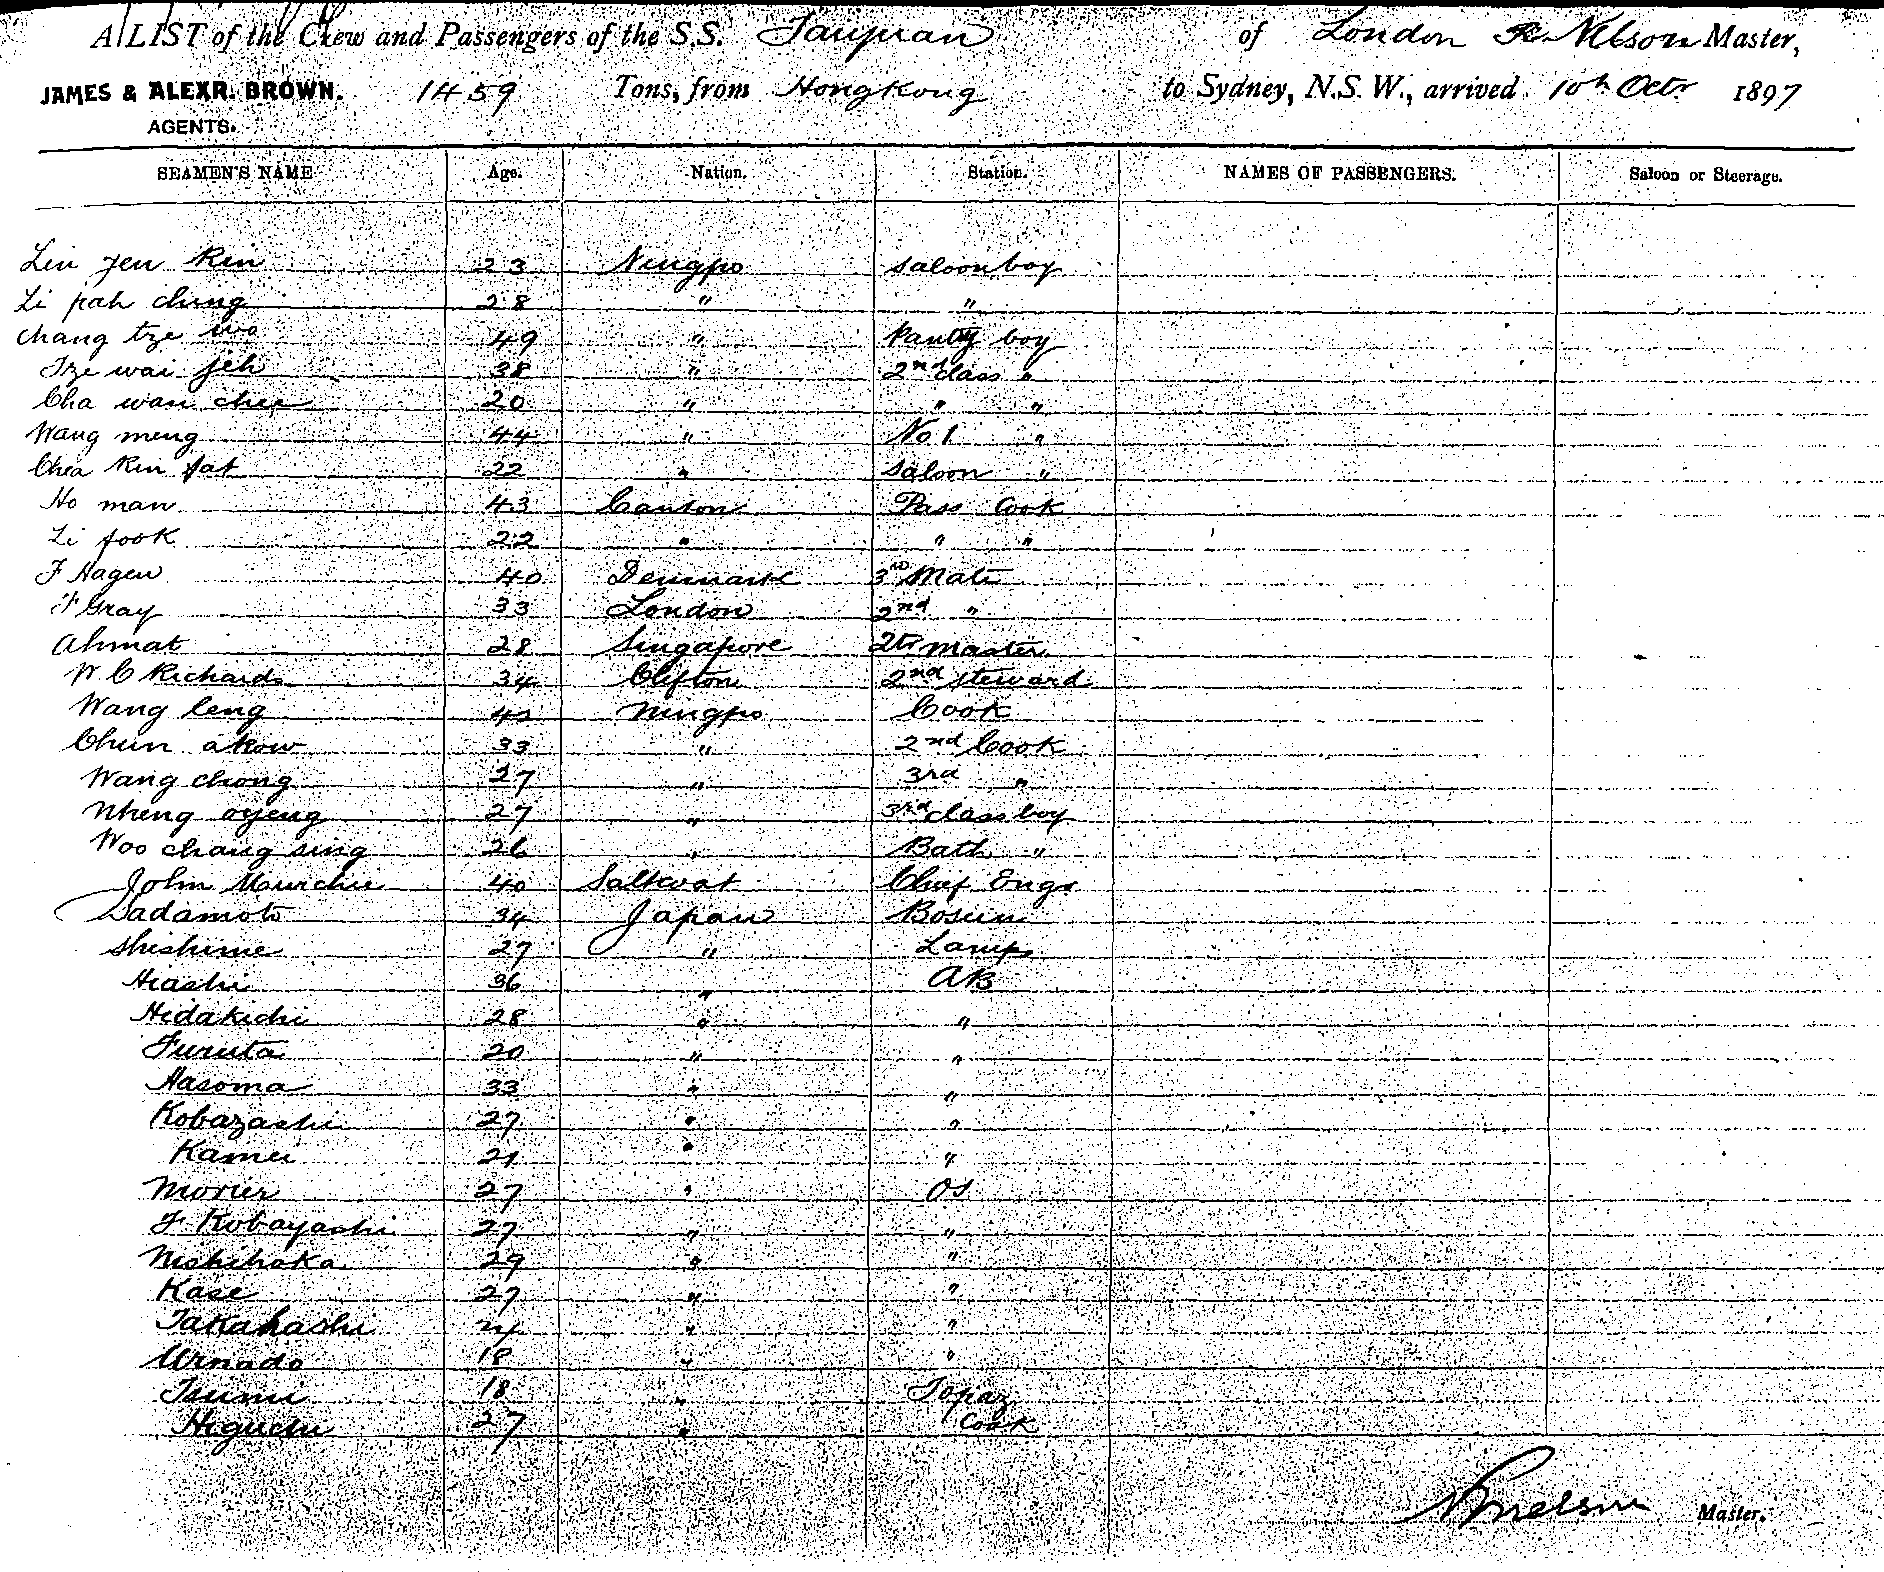 A LIST of the Crew and Passengers of the S.S. Taiyuan of London R. Nelson Master,
JAMES & ALEXR. BROWN. 1459 Tons, from Hongkong to Sydney, N.S.W., arrived 10th Octr 1897
AGENTS.
SEAMEN'S NAME Age. Nation. Station. NAMES OF PASSENGERS. Saloon or Steerage.
Lin Jen Kin 23 Ningpo saloon boy
Li pah ching 28 " "
Chang tze wo 49 " Pantry boy
Tze wai jeh 38 " 2nd class "
Cha wan chee 20 " " "
Wang meng 44 " No 1 "
Chea Kin fat 22 " Saloon "
Ho man 43 Canton Pass Cook
Li fook 22 " " "
F Hagen 40 Denmark 3rd Mate
F Gray 33 London 2nd "
Ahmat 28 Singapore Qtr Master
W C Richards 34 Clifton 2nd steward
Wang leng 42 Ningpo Cook
Chun akow 33 " 2nd Cook
Wang chong 27 " 3rd "
Nheng oyeng 27 " 3rd class boy
Woo chang sing 26 " Bath "
John Murchie 40 Saltcoat Chief Engr
Sadamoto 34 Japan Bosun
Shishime 27 " Lamps
Hiashi 36 " AB
Hidakichi 28 " "
Furuta 20 " "
Hasoma 33 " "
Kobazashi 27 " "
Kamei 21 " "
Morier 27 " OS
F Kobayashi 27 " "
Nishihaka 29 " "
Kase 27 " "
Takahashi " "
Urnado 18 " "
Tsumi 18 " Topaz
Higuchi 27 " Cook
Nelson Master.